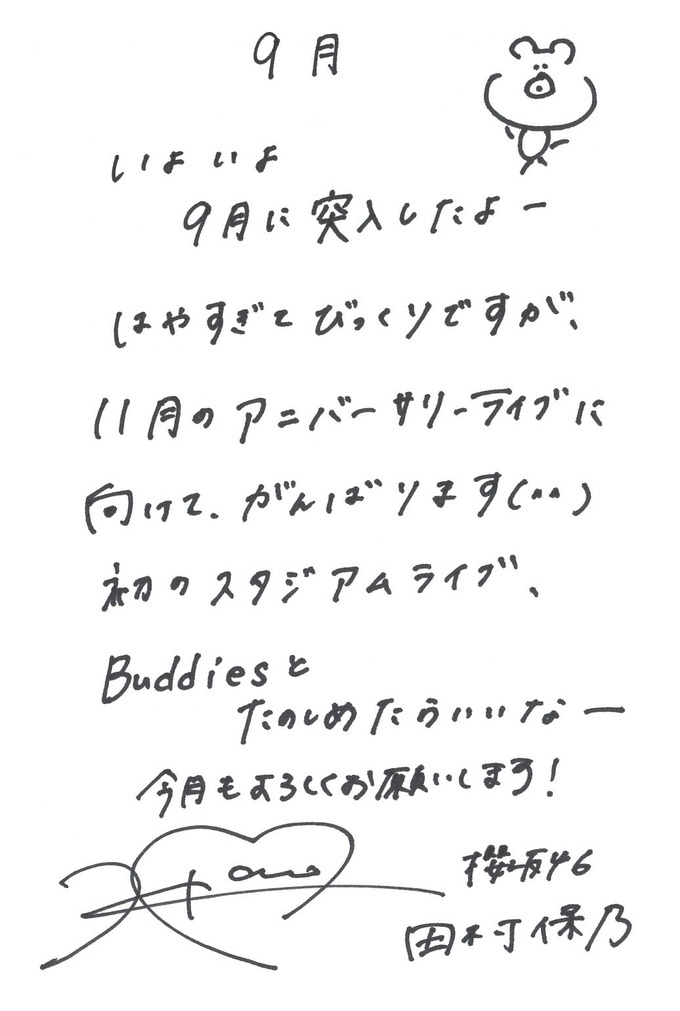 9月
いよいよ
9月に突入したよー
はやすぎてびっくりですが、
11月のアニバーサリーライブに
向けて、がんばります(^^)
初のスタジアムライブ、
Buddiesと
たのしめたらいいなー
今月もよろしくお願いします!
櫻坂46
田村保乃